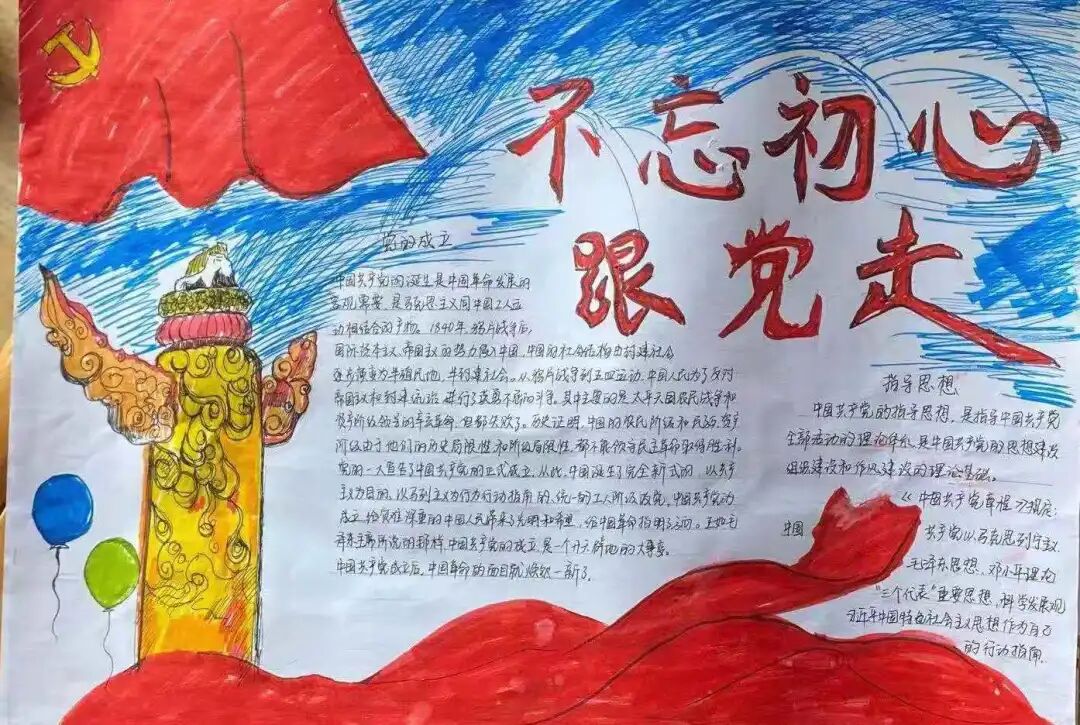 不忘初心
跟党走
党的成立
中国共产党的诞生是中国革命发展的
客观需要,是马克思主义同中国工人运
动相结合的产物。1840年,鸦片战争后,
国际资本主义、帝国主义的势力侵入中国,中国的社会结构由封建社会
逐步演变为半殖民地,半封建社会。从鸦片战争到五四运动,中国人民为了反对
帝国主义和封建统治,进行了英勇不屈的斗争。其中主要的是太平天国农民战争和
资产阶级领导的辛亥革命,但都失败了。历史证明,中国的农民阶级和民族资产
阶级由于他们的历史局限性和阶级局限性,都不能领导民主革命取得胜利。
党的一大宣告了中国共产党的正式成立,从此,中国诞生了完全新式的,以共产
主义为目的,以马列主义为行动指南的,统一的工人阶级政党。中国共产党的
成立,给灾难深重的中国人民带来了光明和希望,给中国革命指明了方向。正如毛
泽东主席所说的那样,中国共产党的成立,是一个开天辟地的大事变。
中国共产党成立后,中国革命的面目就焕然一新了。
指导思想
中国共产党的指导思想,是指导中国共产党
全部活动的理论体系,是中国共产党的思想建设
组织建设和作风建设的理论基础。
《中国共产党章程》规定:
中国
共产党以马克思列宁主义
毛泽东思想、邓小平理论
“三个代表”重要思想、科学发展观
习近平中国特色社会主义思想作为自己
的行动指南。